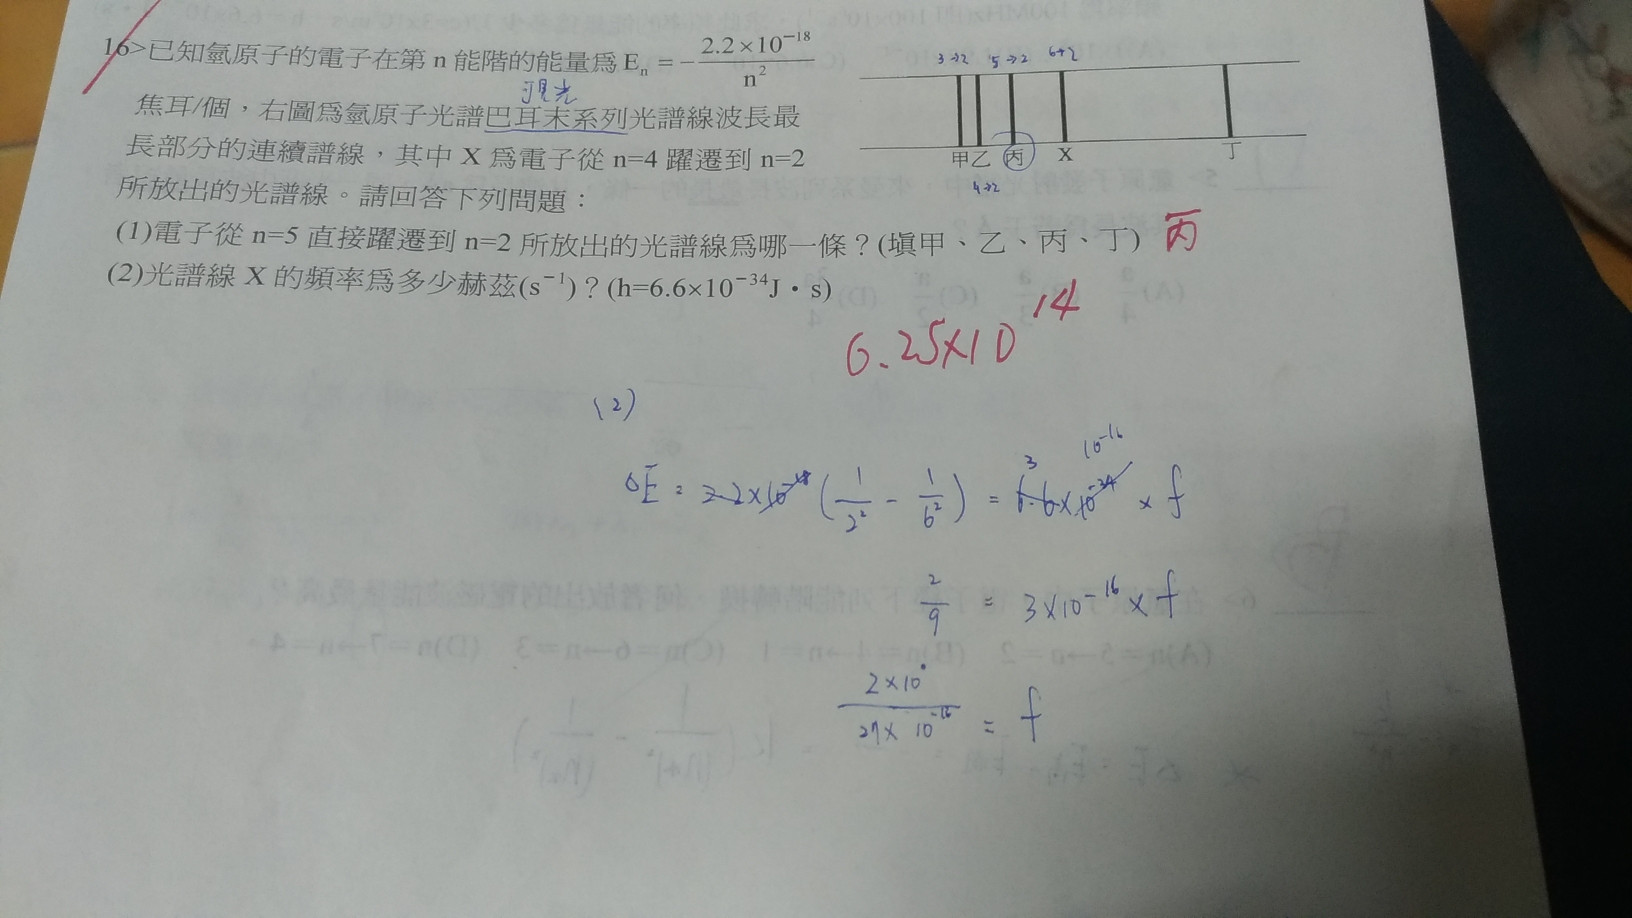 16>已知氫原子的電子在第 n 能階的能量爲 Eₙ = − 2.2×10⁻¹⁸ / n²
可見光
焦耳/個，右圖爲氫原子光譜巴耳末系列光譜線波長最
長部分的連續譜線，其中 X 爲電子從 n=4 躍遷到 n=2
所放出的光譜線。請回答下列問題：
3→2 5→2 6→2
甲乙 丙 X 丁
4→2
(1)電子從 n=5 直接躍遷到 n=2 所放出的光譜線爲哪一條？(填甲、乙、丙、丁) 丙
(2)光譜線 X 的頻率爲多少赫茲(s⁻¹)？(h=6.6×10⁻³⁴J・s)
6.25×10¹⁴
(2)
3 10⁻¹⁶
△E = 2.2×10⁻¹⁸ (1/2² − 1/6²) = 6.6×10⁻³⁴ × f
2/9 = 3×10⁻¹⁶ × f
2×10⁰ / 27×10⁻¹⁶ = f